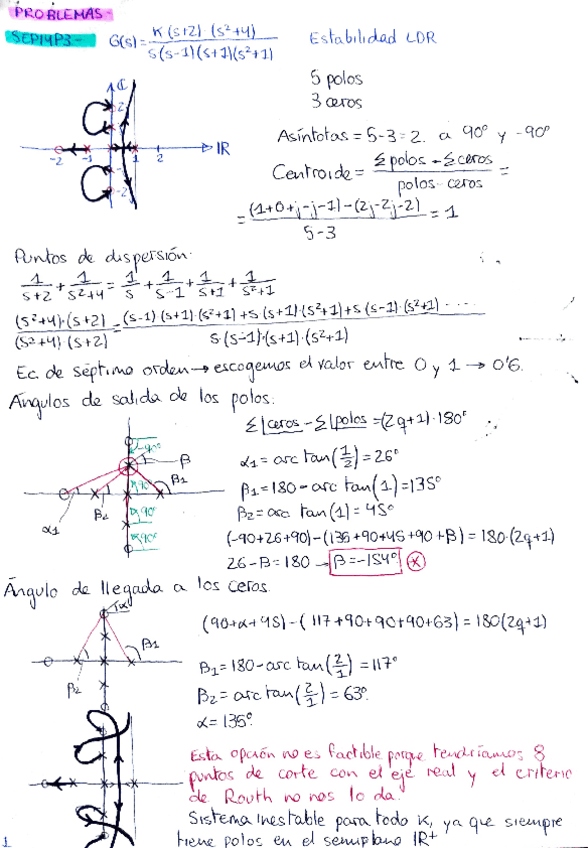 PROBLEMAS-
SEP14P3- G(s) = K(s+2)(s²+4) / s(s-1)(s+1)(s²+1) Estabilidad LDR
5 polos
3 ceros
Asíntotas = 5-3 = 2. a 90° y -90°
Centroide = Σpolos - Σceros / polos - ceros =
= (1+0+j-j-1)-(2j-2j-2) / 5-3 = 1
ℂ
IR
2
-2 -1 1 2
-2
Puntos de dispersión:
1/s+2 + 1/s²+4 = 1/s + 1/s-1 + 1/s+1 + 1/s²+1
(s²+4)+(s+2) / (s²+4)(s+2) = (s-1)(s+1)(s²+1)+s(s+1)(s²+1)+s(s-1)·(s²+1)..... / s·(s-1)·(s+1)·(s²+1)
Ec. de séptimo orden → escogemos el valor entre 0 y 1 → 0'6.
Ángulos de salida de los polos:
Σ∠ceros - Σ∠polos = (2q+1)·180°
α1 = arc tan(1/2) = 26°
β1 = 180 - arc tan(1) = 135°
β2 = arc tan(1) = 45°
(-90+26+90)-(135+90+45+90+β) = 180·(2q+1)
26-β = 180 → β = -154° *
-90°
β
β1
90°
α1
β2
90°
90°
Ángulo de llegada a los ceros.
(90+α+45)-(117+90+90+90+63) = 180(2q+1)
β1 = 180 - arc tan(2/1) = 117°
β2 = arc tan(2/1) = 63°.
α = 135°.
α
β1
β2
Esta opción no es factible porque tendríamos 8
puntos de corte con el eje real y el criterio
de Routh no nos lo da.
Sistema inestable para todo K, ya que siempre
tiene polos en el semiplano IR⁺
1